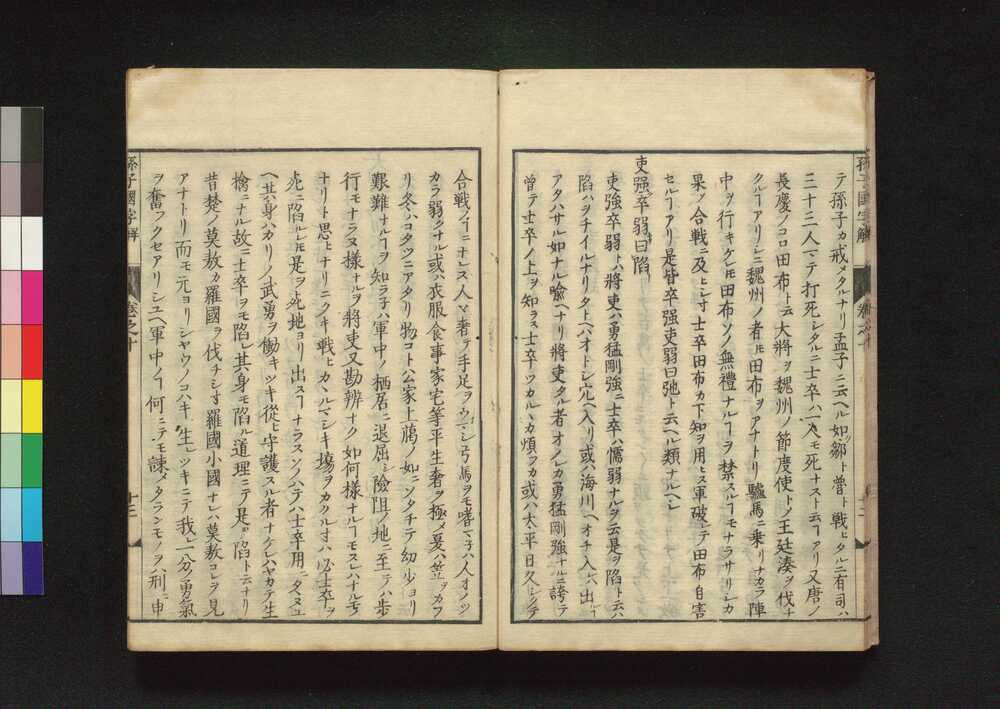 テ孫子カ戒メタルナリ孟子ニ云ヘル如ク鄒ト曽ト戰ヒタルニ有司ハ
三十三人マテ打死シタルニ士卒ハ一人モ死ナスト云ヿアリ又唐ノ
長慶ノコロ田布ト云大將ヲ魏州ノ節度使トノ王廷湊ヲ伐ナ
クルヿアリシニ魏州ノ者𪜈田布ヲアナトリ驢馬ニ乗リナカラ陣
中ヲ行キクレ𪜈田布ソノ無禮ナルヿヲ禁スルヿモナラサリシカ
果ノ合戰ニ及ヒシ寸士卒田布カ下知ヲ用ヒス軍破レテ田布自害
セルヿアリ是皆卒强吏弱曰弛ト云ヘル類ナルヘシ
吏强卒弱曰陷
吏强卒弱トハ將吏ハ勇猛剛強ニ士卒ハ懦弱ナルヲ云是ヲ陷ト云ハ
陷ハヲチイルナリタトヘハオトシ穴ヘ入リ或ハ海川ヘオチ入レハ出ルヿ
アタハサル如ナル喩ヘナリ將吏タル者オノレカ勇猛剛強ナルニ誇テ
曽テ士卒ノ上ヲ知ラス士卒ツカルルカ煩フカ或ハ太平日久シクテ
合戰ノヿニナレス人々奢テ手足ヲウコカシ弓馬ヲモ嗜マ子ハ人オノツ
カラ弱クナル或ハ衣服食事家宅等平生奢ヲ極メ夏ハ笠ヲカフ
リ冬ハコタツニアタリ物コト公家上﨟ノ如ニソタチテ幼少ヨリ
艱難ナルヿヲ知ラ子ハ軍中ノ栖居ニ退屈シ險阻ノ地ニ至テハ歩
行モナラヌ様ナルヲ將吏又勘辨ナク如何様ナルヿモスレハナルモ
ナリト思ヒナリニクキ戰ヒカヽルマシキ塲ヲカクル寸ハ必士卒ヲ
死ニ陷レ𪜈是ヲ死地ヨリ出スヿナラスソノハテハ士卒用ニタヽヌユ
ヘ其身ハカリノ武勇ヲ働キツキ從ヒ守護スル者ナケレハヤカテ生
擒ニナル故ニ士卒ヲモ陷レ其身モ陷ル道理ニテ是ヲ陷ト云ナリ
昔楚ノ莫敖カ羅國ヲ伐チシ寸羅國小國ナレハ莫敖コレヲ見
アナトリ而モ元ヨリシヤウノコハキ生レツキニテ我レ一分ノ勇氣
ヲ奮フクセアリシユヘ軍中ノヿ何ニテモ諫メタランモノヲハ刑ニ申
孫子國字解
卷之十
十三